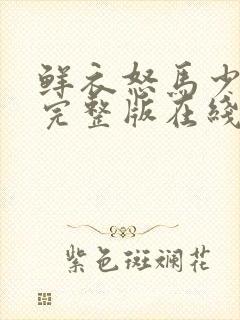 鲜衣怒马少
完整版在线
紫色斑斓花